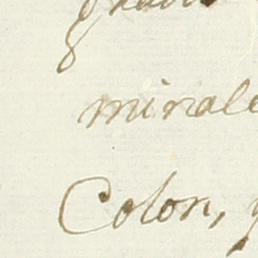 mirale
Colon, y